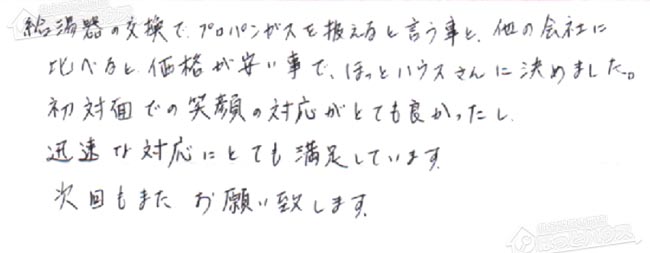 給湯器の交換で、プロパンガスを扱えると言う事と、他の会社に
比べると、価格が安い事で、ほっとハウスさんに決めました。
初対面での笑顔の対応がとても良かったし、
迅速な対応にとても満足しています。
次回もまた お願い致します。
ほっとハウス
ほっとハウス